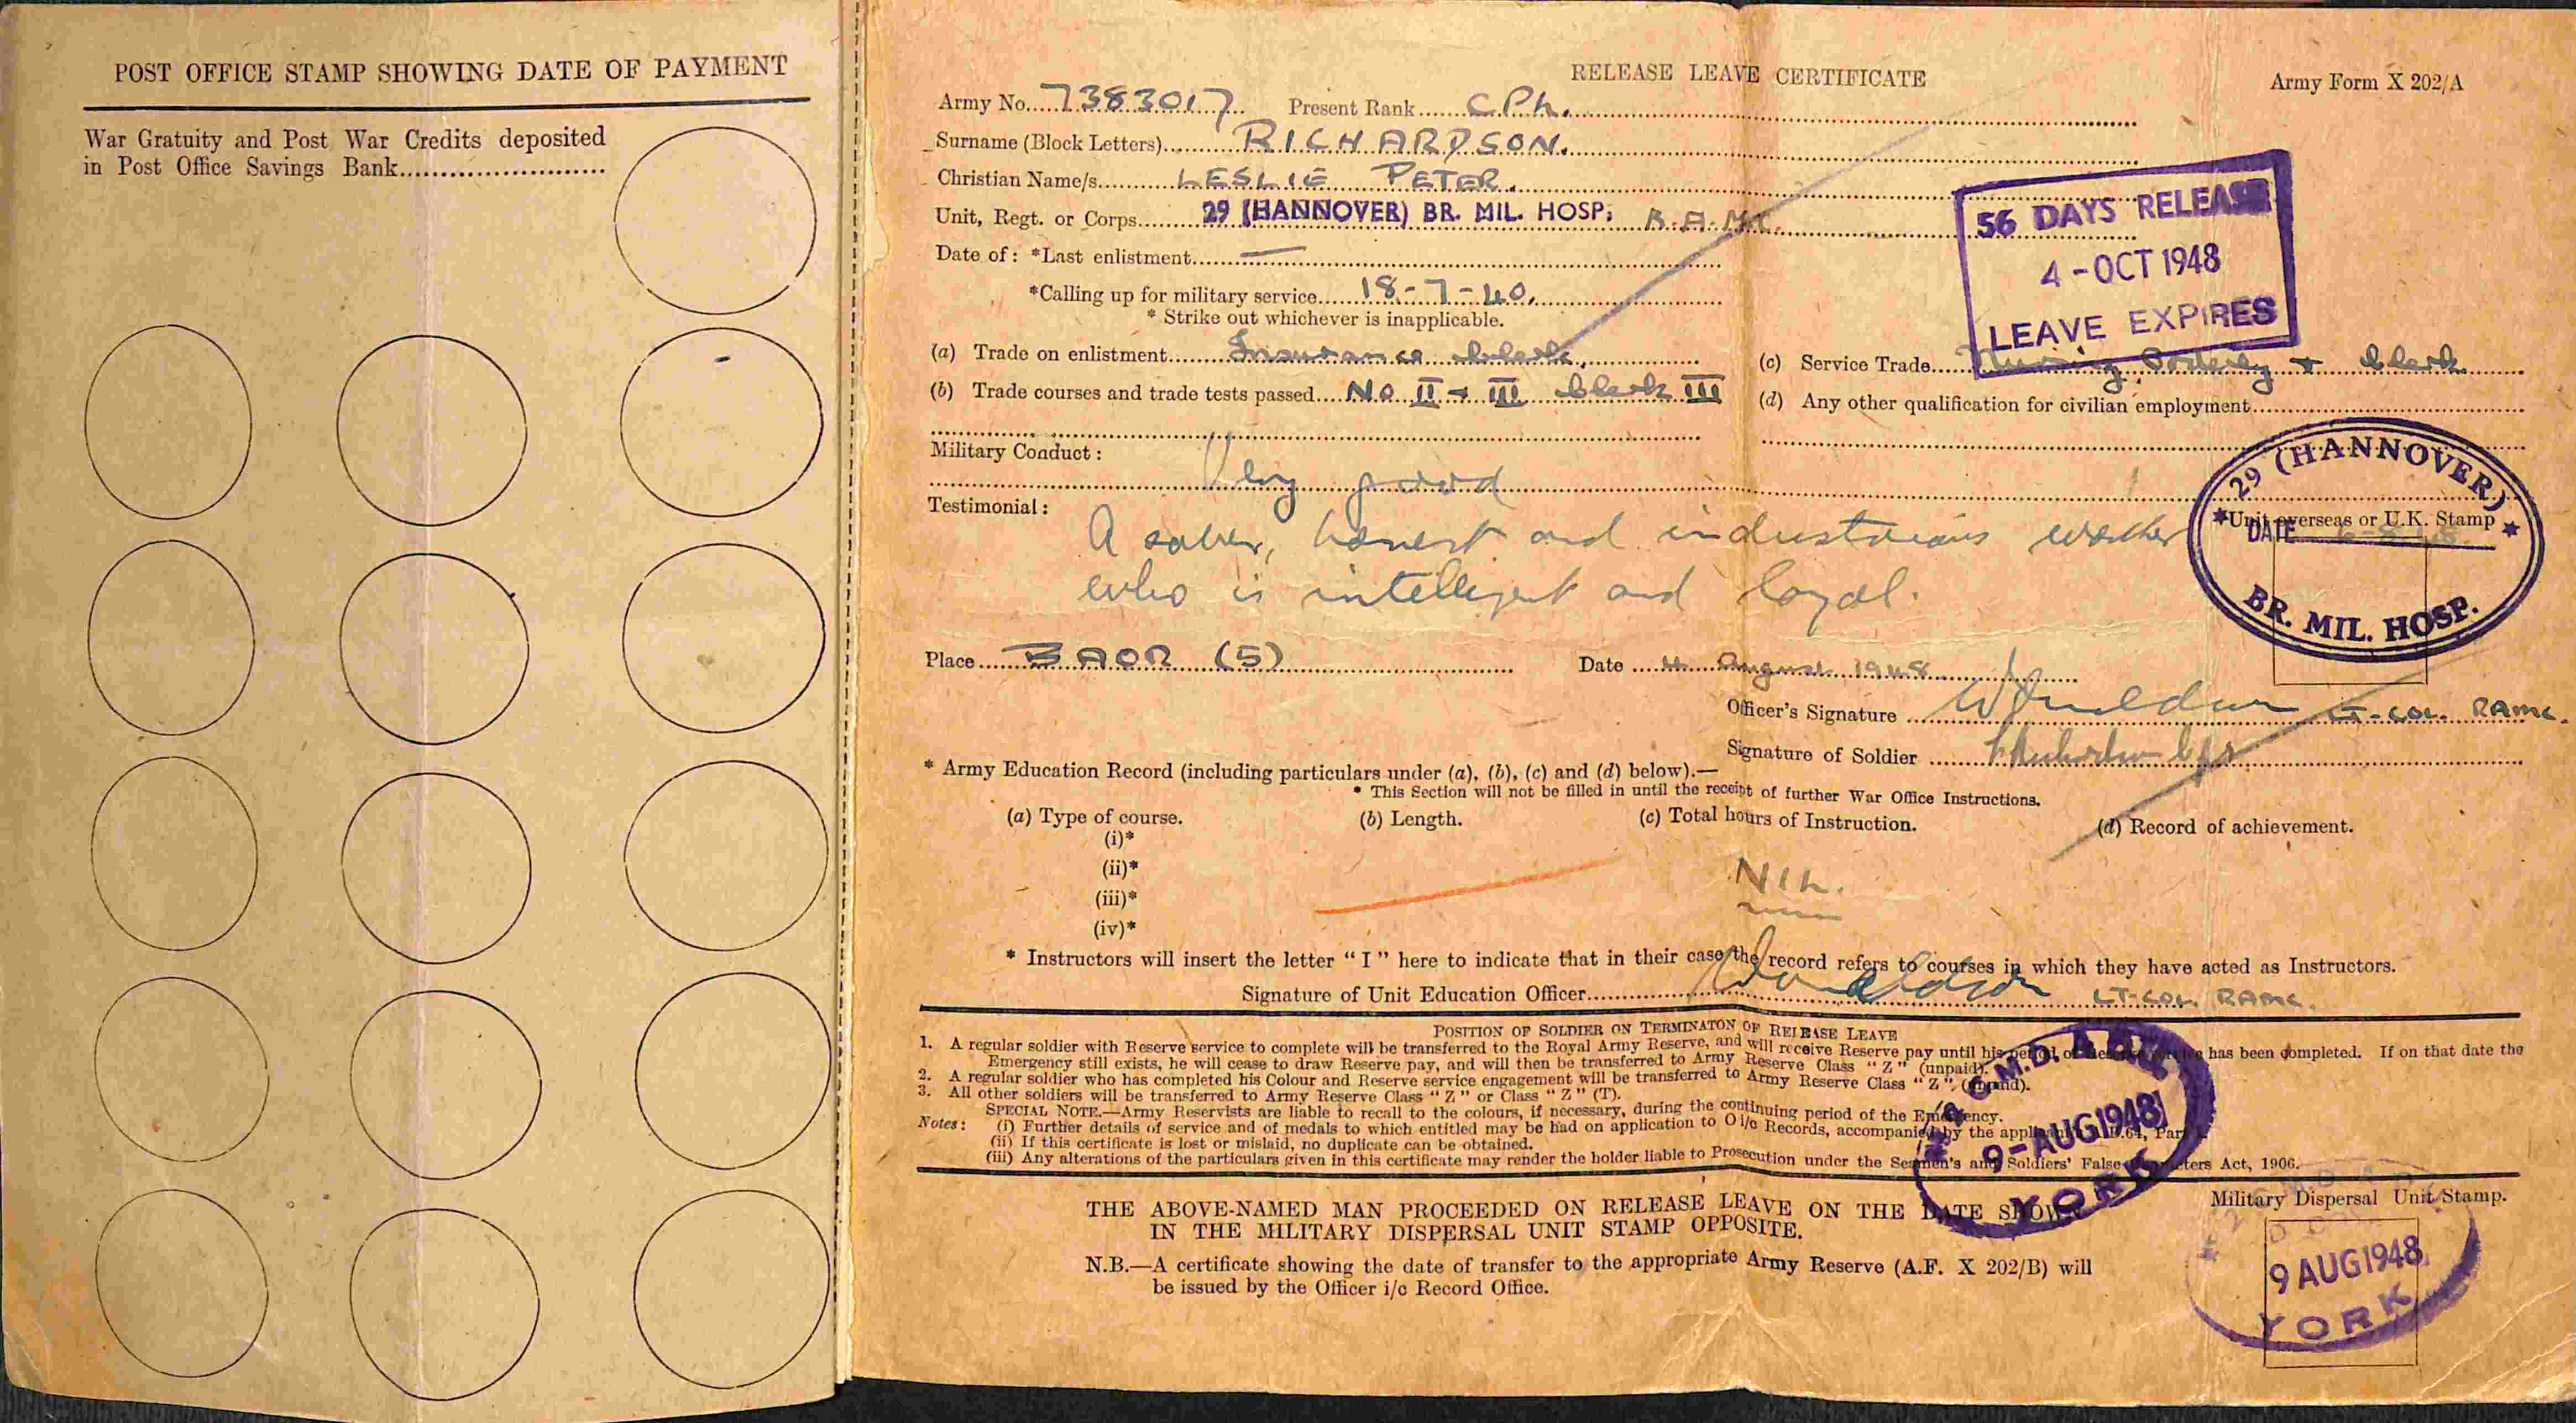 POST OFFICE STAMP SHOWING DATE OF PAYMENT
War Gratuity and Post War Credits deposited
in Post Office Savings Bank
RELEASE LEAVE CERTIFICATE
Army Form X 202/A
Army No. 7383017 Present Rank CPL.
Surname (Block Letters) RICHARDSON.
Christian Name/s LESLIE PETER.
Unit, Regt. or Corps 29 (HANNOVER) BR. MIL. HOSP; R.A.M.C.
56 DAYS RELEASE
4-OCT 1948
LEAVE EXPIRES
Date of: *Last enlistment —
*Calling up for military service 18-7-40.
* Strike out whichever is inapplicable.
(a) Trade on enlistment Insurance Clerk.
(c) Service Trade Nursing Orderly + Clerk
(b) Trade courses and trade tests passed NO II + III Clerk III
(d) Any other qualification for civilian employment
Military Conduct:
Very good
Testimonial:
A sober, honest and industrious worker
who is intelligent and loyal.
29 (HANNOVER)
*Unit overseas or U.K. Stamp *
DATE
BR. MIL. HOSP.
Place BAOR (5) Date 4 August 1948
Officer's Signature LT-COL. RAMC.
Signature of Soldier LRichardson Cpl
* Army Education Record (including particulars under (a), (b), (c) and (d) below).—
* This Section will not be filled in until the receipt of further War Office Instructions.
(a) Type of course. (b) Length. (c) Total hours of Instruction. (d) Record of achievement.
(i)*
(ii)*
NIL.
(iii)*
(iv)*
* Instructors will insert the letter "I" here to indicate that in their case the record refers to courses in which they have acted as Instructors.
Signature of Unit Education Officer LT-COL. RAMC.
POSITION OF SOLDIER ON TERMINATON OF RELEASE LEAVE
1. A regular soldier with Reserve service to complete will be transferred to the Royal Army Reserve, and will receive Reserve pay until his period of Reserve service has been completed. If on that date the
Emergency still exists, he will cease to draw Reserve pay, and will then be transferred to Army Reserve Class "Z" (unpaid).
2. A regular soldier who has completed his Colour and Reserve service engagement will be transferred to Army Reserve Class "Z" (unpaid).
3. All other soldiers will be transferred to Army Reserve Class "Z" or Class "Z" (T).
SPECIAL NOTE.—Army Reservists are liable to recall to the colours, if necessary, during the continuing period of the Emergency.
Notes: (i) Further details of service and of medals to which entitled may be had on application to O i/c Records, accompanied by the applicant's
(ii) If this certificate is lost or mislaid, no duplicate can be obtained.
(iii) Any alterations of the particulars given in this certificate may render the holder liable to Prosecution under the Seamen's and Soldiers' False Characters Act, 1906.
9-AUG 1948
YORK
THE ABOVE-NAMED MAN PROCEEDED ON RELEASE LEAVE ON THE DATE SHOWN
IN THE MILITARY DISPERSAL UNIT STAMP OPPOSITE.
N.B.—A certificate showing the date of transfer to the appropriate Army Reserve (A.F. X 202/B) will
be issued by the Officer i/c Record Office.
Military Dispersal Unit Stamp.
9 AUG 1948
YORK